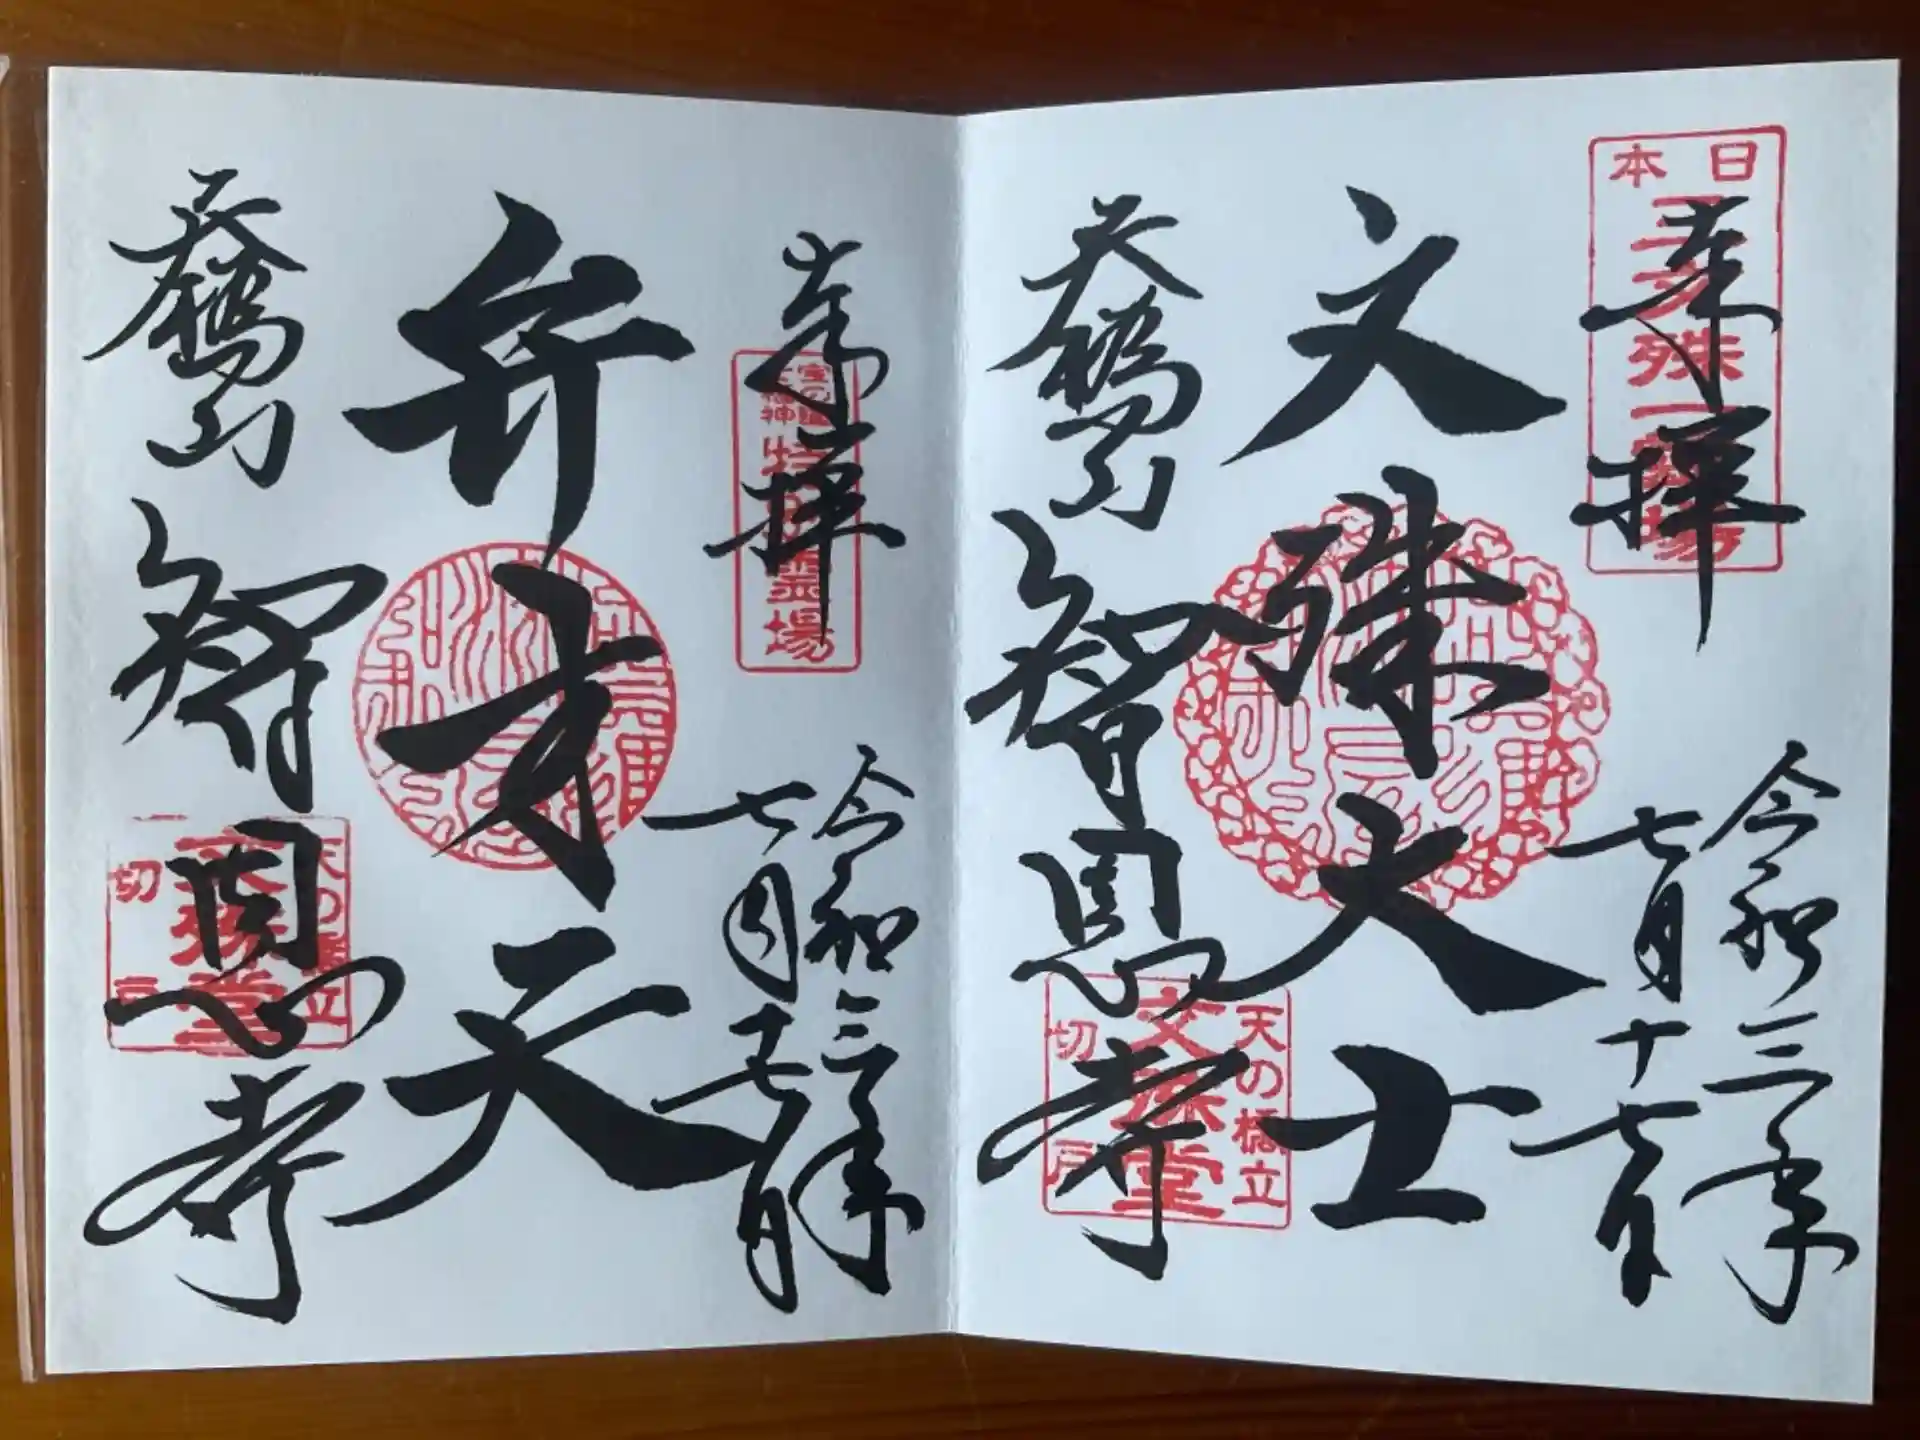 日本
三文殊
奉拝
令和三年
七月十七日
文殊大士
天橋山
智恩寺
天の橋立
文殊堂
切戸
奉拝
霊場
令和三年
七月十七日
弁才天
天橋山
智恩寺
天の橋立
文殊堂
切戸